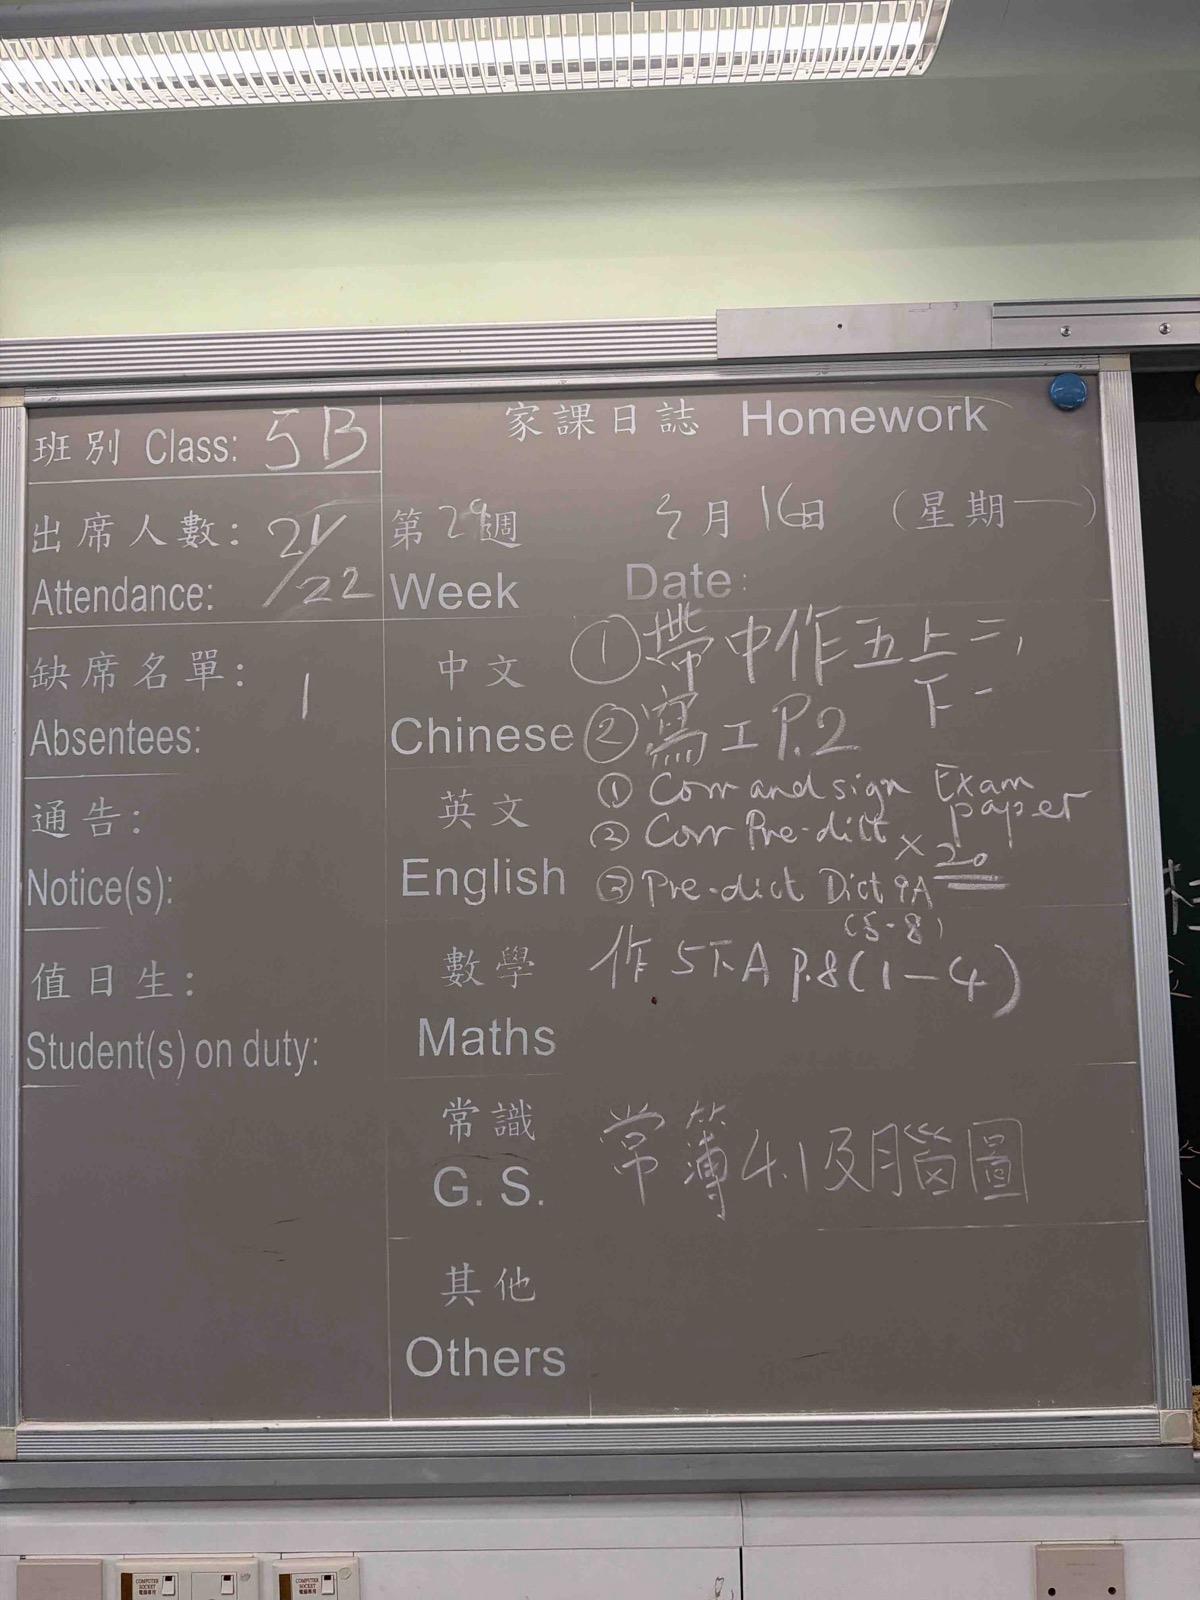 班別 Class: 5B
家課日誌 Homework
出席人數: 21/22
Attendance:
第29週 3月16日 (星期一)
Week Date:
缺席名單: 1
Absentees:
中文
Chinese
①帶中作五上二,
下一
②寫工P.2
通告:
Notice(s):
英文
English
① Corr and sign Exam
paper
② Corr Pre-dict × 20
③ Pre-dict Dict 9A
(5-8)
值日生:
Student(s) on duty:
數學
Maths
作5下A P.8(1-4)
常識
G. S.
常簿4.1及腦圖
其他
Others
COMPUTER
SOCKET
電腦專用
COMPUTER
SOCKET
電腦專用